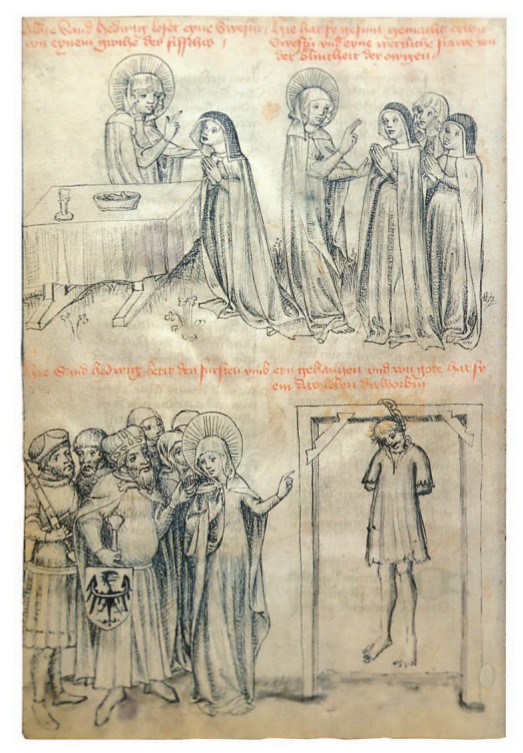 Sand hedwig loset eyne Swester
von eynem grethe des fissches
Hie hat sy gesunt gemacht czwu
Swestir und eyne wertliche frawe von
der blintheit der owgen
Hie Sand hedwig betit den fursten umb eyn gehangen und von gote hat sy
em das leben dirworbin